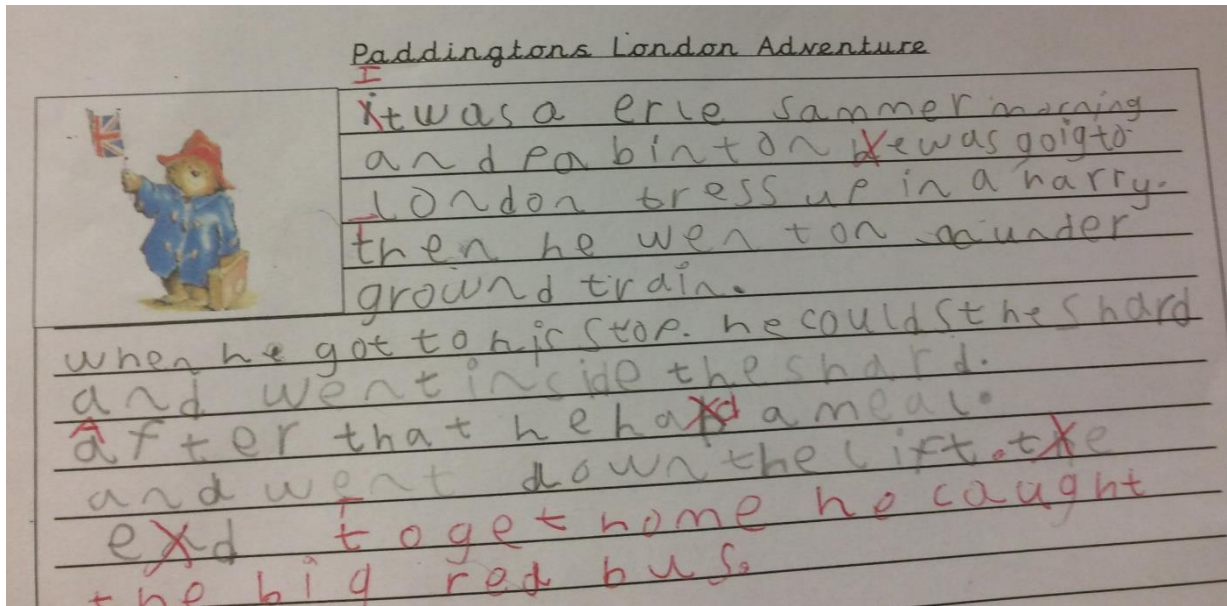 Paddingtons London Adventure
I
itwas a erle sammer morning
and pabinton hewas goigto
London tress up in a harry.
then he went on a under
grownd train.
when he got to his stop. he could s the shard
and went inside the shard.
After that he had a meal.
and went down the lift. the
end to get home he caught
the big red bus.